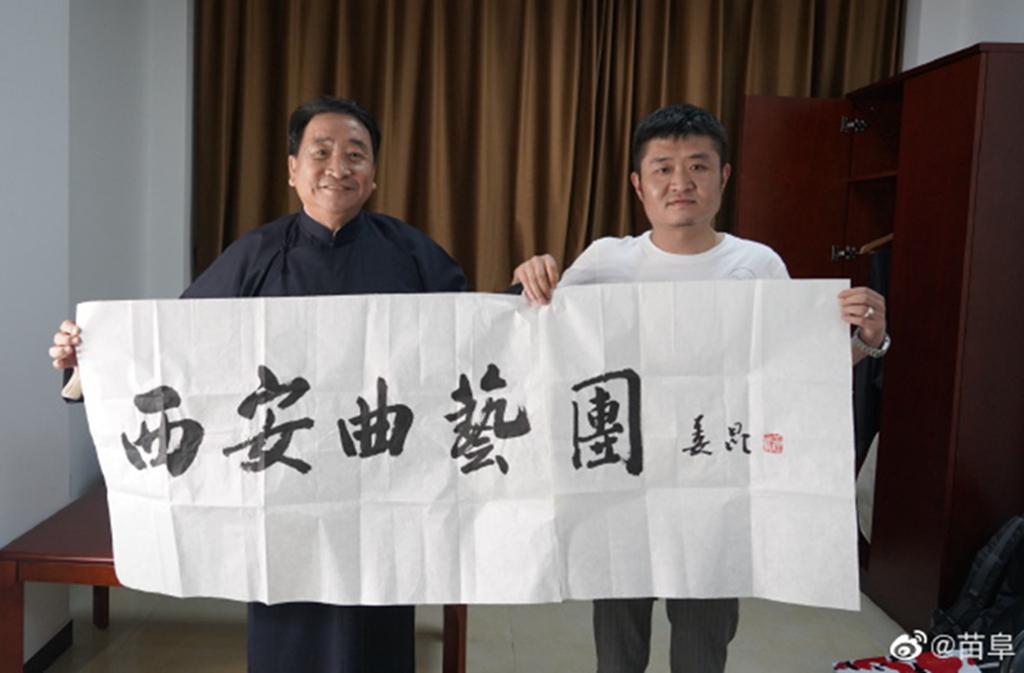 西安曲藝團
姜昆
@苗阜